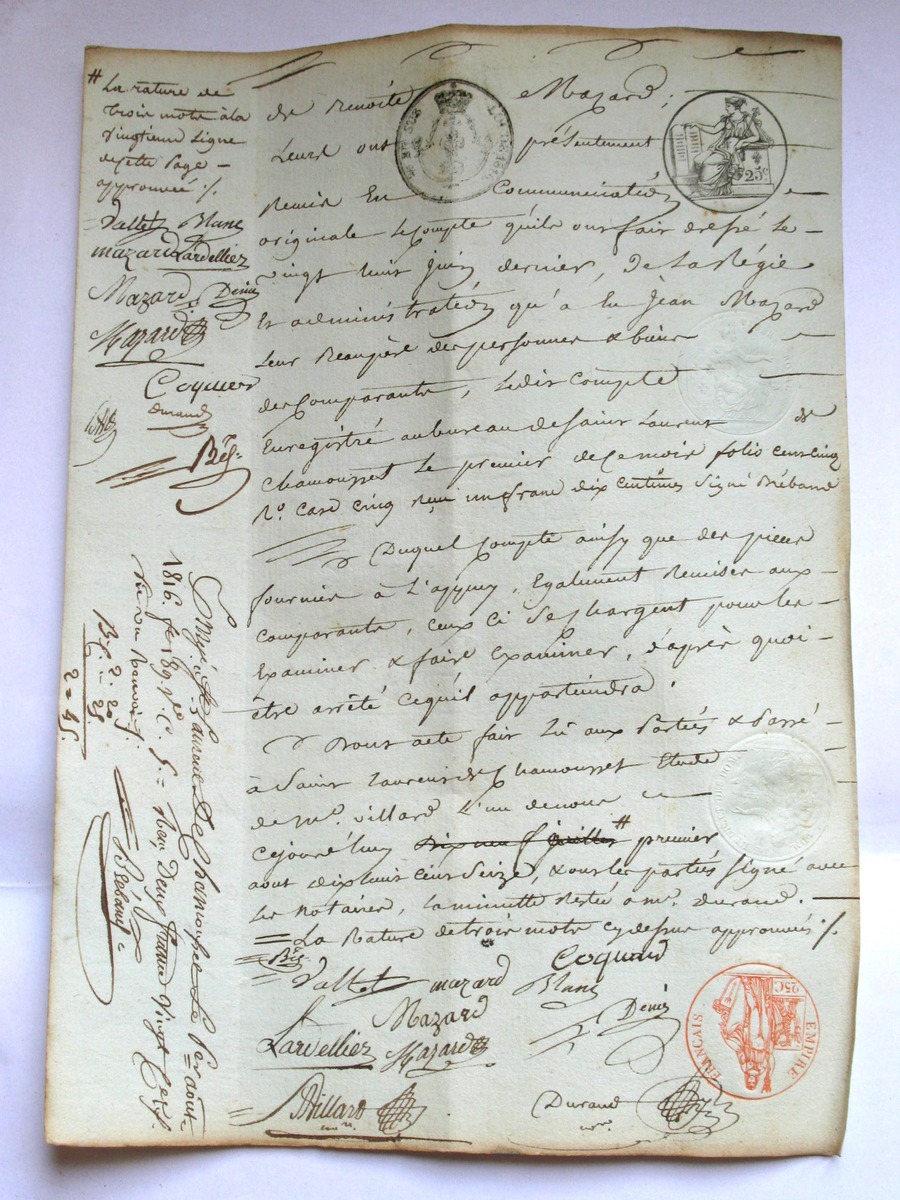 # La rature de
trois mots à la
vingtieme ligne
de cette page
approuvée ./.
Vallet Blanc
mazard Lardellier
Mazard Denis
Mazard
Coquard
Durand
Bés=
de Benoîte Mazard;
Leurs ont présentement
Remis En Communication
originale le Compte qu'ils ont fait dressé le
vingt huit juin dernier, De la Régie
Et administration qu'a Eu Jean Mazard
leur Beaupère des personnes & biens
des Comparants, ledit Compte
Enregistré au bureau de saint Laurent de
Chamousset le premier de ce mois folio cent cinq
Ro. Case cinq reçu un franc dix centimes Signé Brébant
Duquel Compte ainsy que des pieces
fournies à l'appuy, Egalement Remises aux
Comparants, ceux ci se chargent pour les
Examiner & faire Examiner, d'après quoi
être arrêté ce qu'il appartiendra.
Dont acte fait Lû aux Parties & Passé
à Saint Laurent de Chamousset Etude
de Me. Villard L'un de nous
Cejourd'huy dix neuf juillet # premier
aout dix huit cent Seize, & ont les parties signé avec
les Notaires, la minutte Restée a me. Durand.
= La Rature de trois mots cy dessus approuvée ./.
Bés=
Vallet mazard Coquard Blanc
Lardellier Mazard Mazard Denis
Villard nre. Durand nre.
Enregé. à St. Laurent De Chamousset Le 1er août
1816. fo. 189. Vo. C. 5. Deux francs Vingt Cent.
2. 20
25
2 = 45.
Brebant
25c
EMPIRE FRANÇAIS
25C